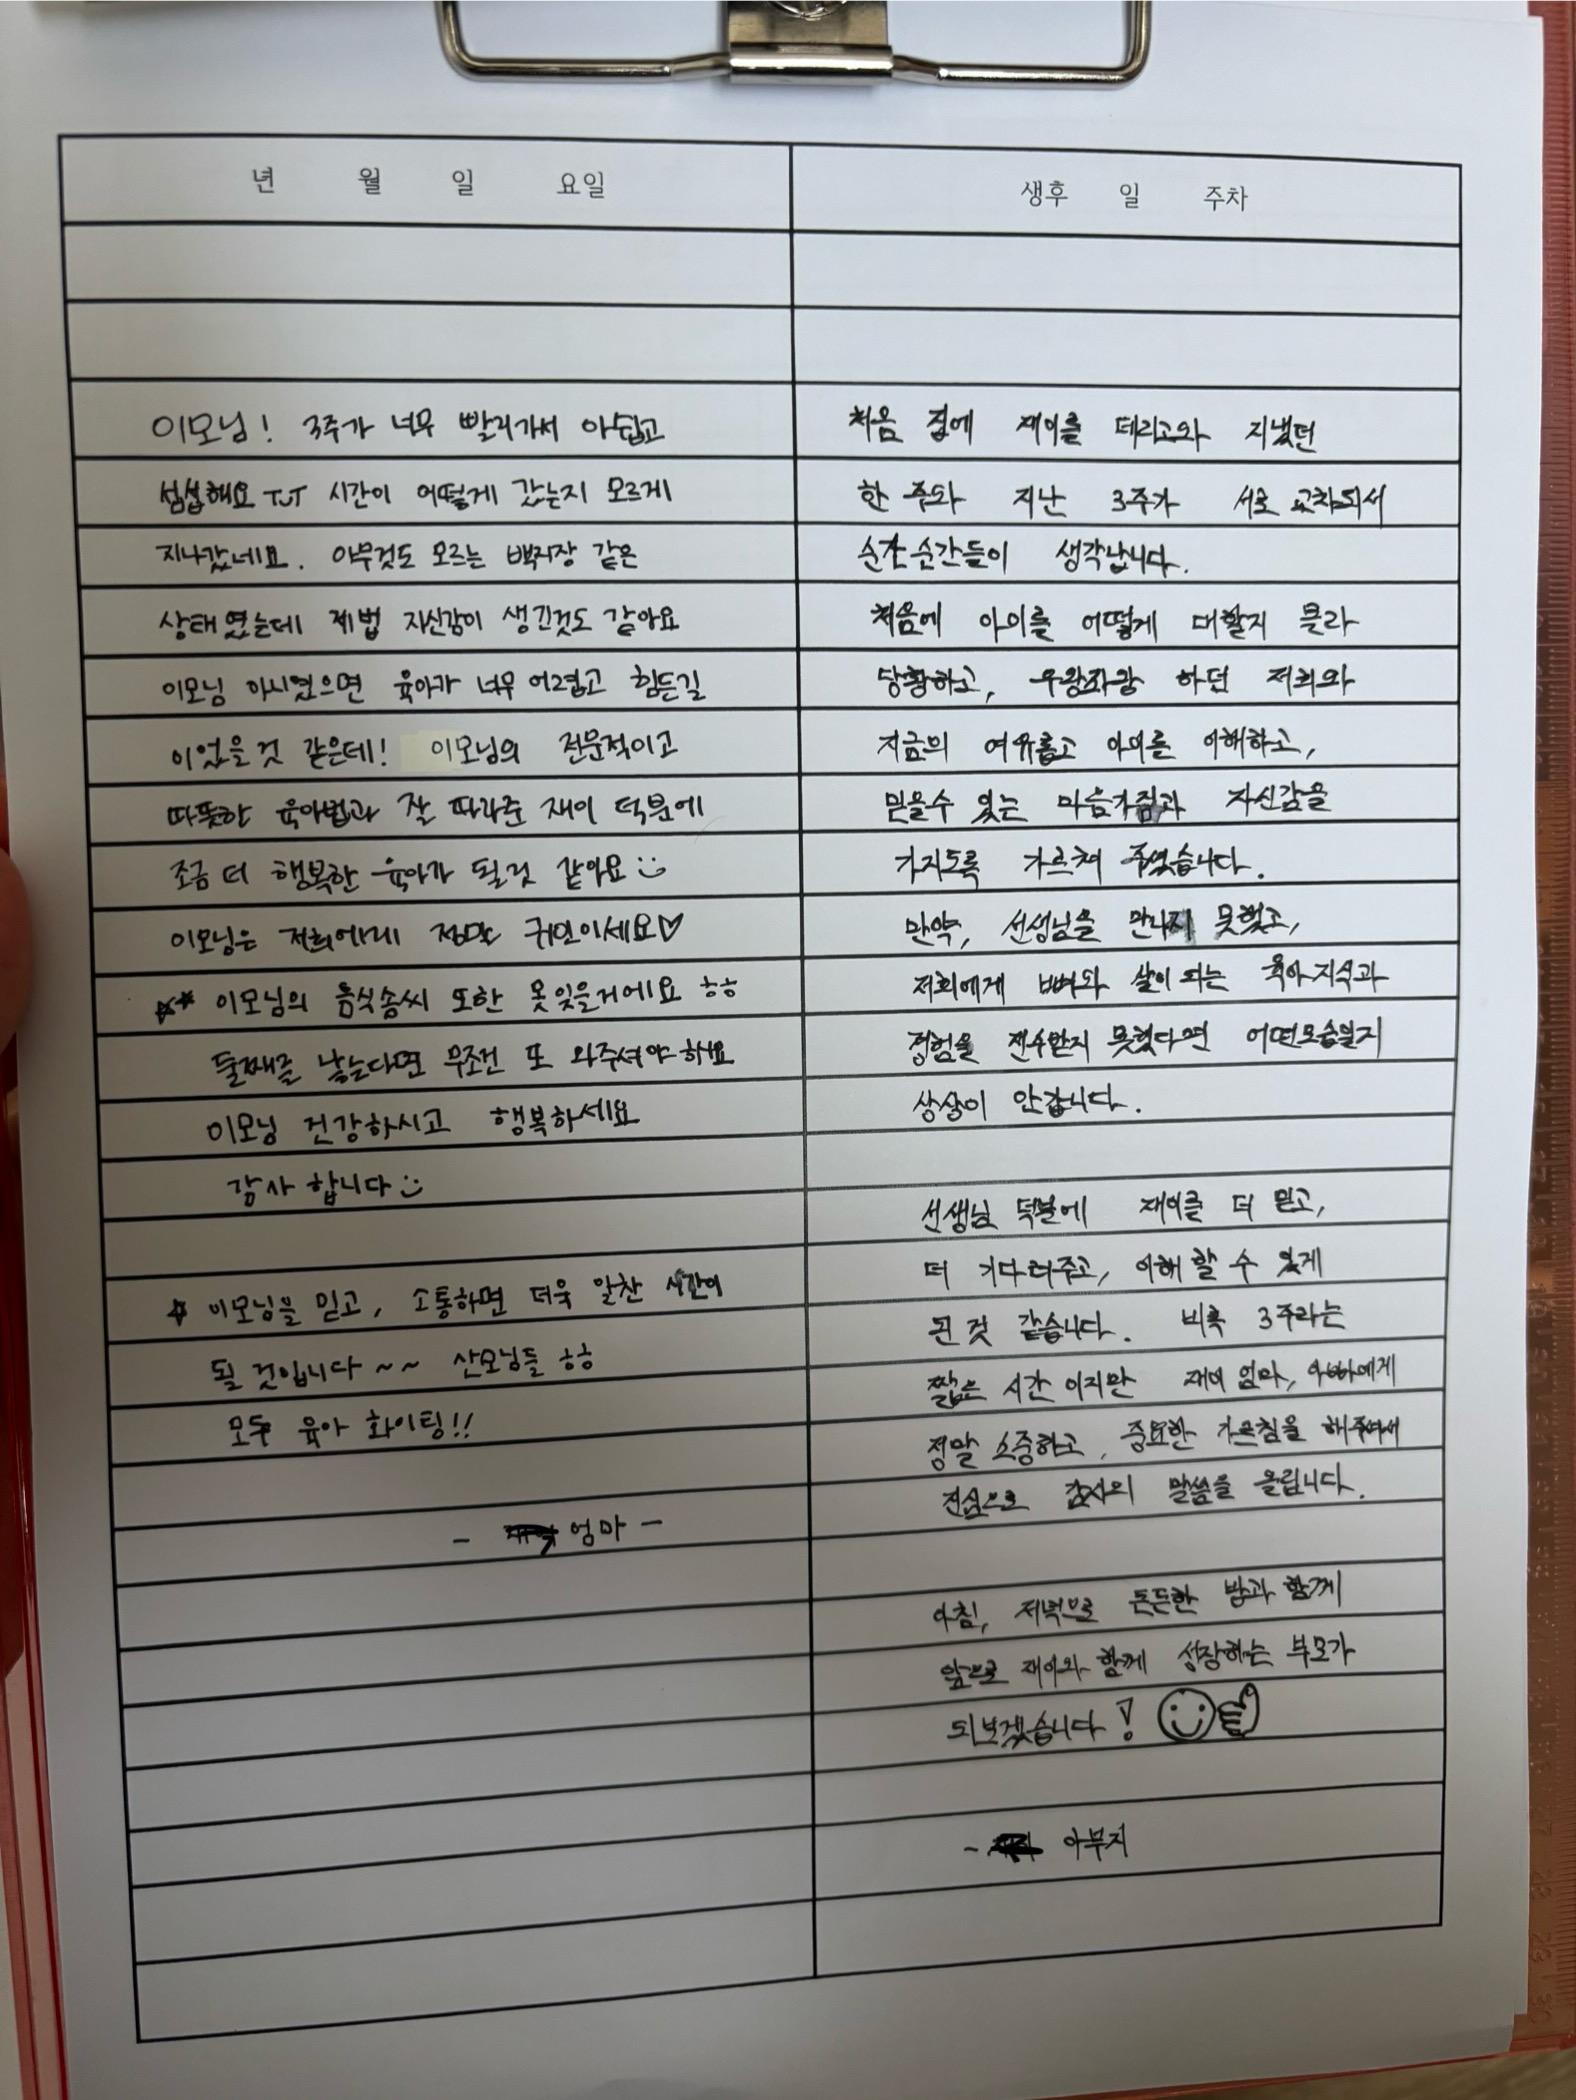 년 월 일 요일
생후 일 주차
이모님! 3주가 너무 빨리가서 아쉽고
섭섭해요 ToT 시간이 어떻게 갔는지 모르게
지나갔네요. 아무것도 모르는 백지장 같은
상태였는데 제법 자신감이 생긴것도 같아요
이모님 아시였으면 육아가 너무 어렵고 힘든길
이었을것 같은데! 이모님의 전문적이고
따뜻한 육아법과 잘 따라준 재이 덕분에
조금 더 행복한 육아가 될것 같아요
이모님은 저희에게 정말 귀인이세요♡
☆☆ 이모님의 음식솜씨 또한 못잊을거에요 ㅎㅎ
둘째를 낳는다면 무조건 또 와주셔야 해요
이모님 건강하시고 행복하세요
감사 합니다
☆ 이모님을 믿고, 소통하면 더욱 알찬 시간이
될 것입니다 ~~ 산모님들 ㅎㅎ
모두 육아 화이팅!!
- 엄마 -
처음 집에 재이를 데리고와 지냈던
한 주와 지난 3주가 서로 교차되서
순간순간들이 생각납니다.
처음에 아이를 어떻게 대할지 몰라
당황하고, 우왕좌왕 하던 저희와
지금의 여유롭고 아이를 이해하고,
믿을수 있는 마음가짐과 자신감을
가지도록 가르쳐 주셨습니다.
만약, 선생님을 만나지 못했고,
저희에게 뼈와 살이 되는 육아지식과
경험을 전수받지 못했다면 어떤모습일지
상상이 안갑니다.
선생님 덕분에 재이를 더 믿고,
더 기다려주고, 이해 할 수 있게
된 것 같습니다. 비록 3주라는
짧은 시간 이지만 재이 엄마, 아빠에게
정말 소중하고, 중요한 가르침을 해주여서
진심으로 감사의 말씀을 올립니다.
아침, 저녁으로 든든한 밤과 함께
앞으로 재이와 함께 성장하는 부모가
되보겠습니다!
- 아부지